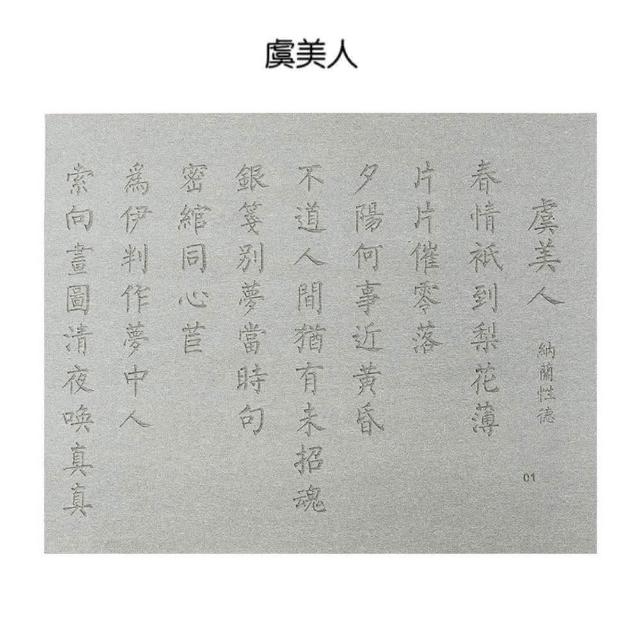 虞美人
虞美人
納蘭性德
春情衹到梨花薄
片片催零落
夕陽何事近黃昏
不道人間猶有未招魂
銀箋別夢當時句
密綰同心苣
為伊判作夢中人
索向畫圖清夜喚真真
01